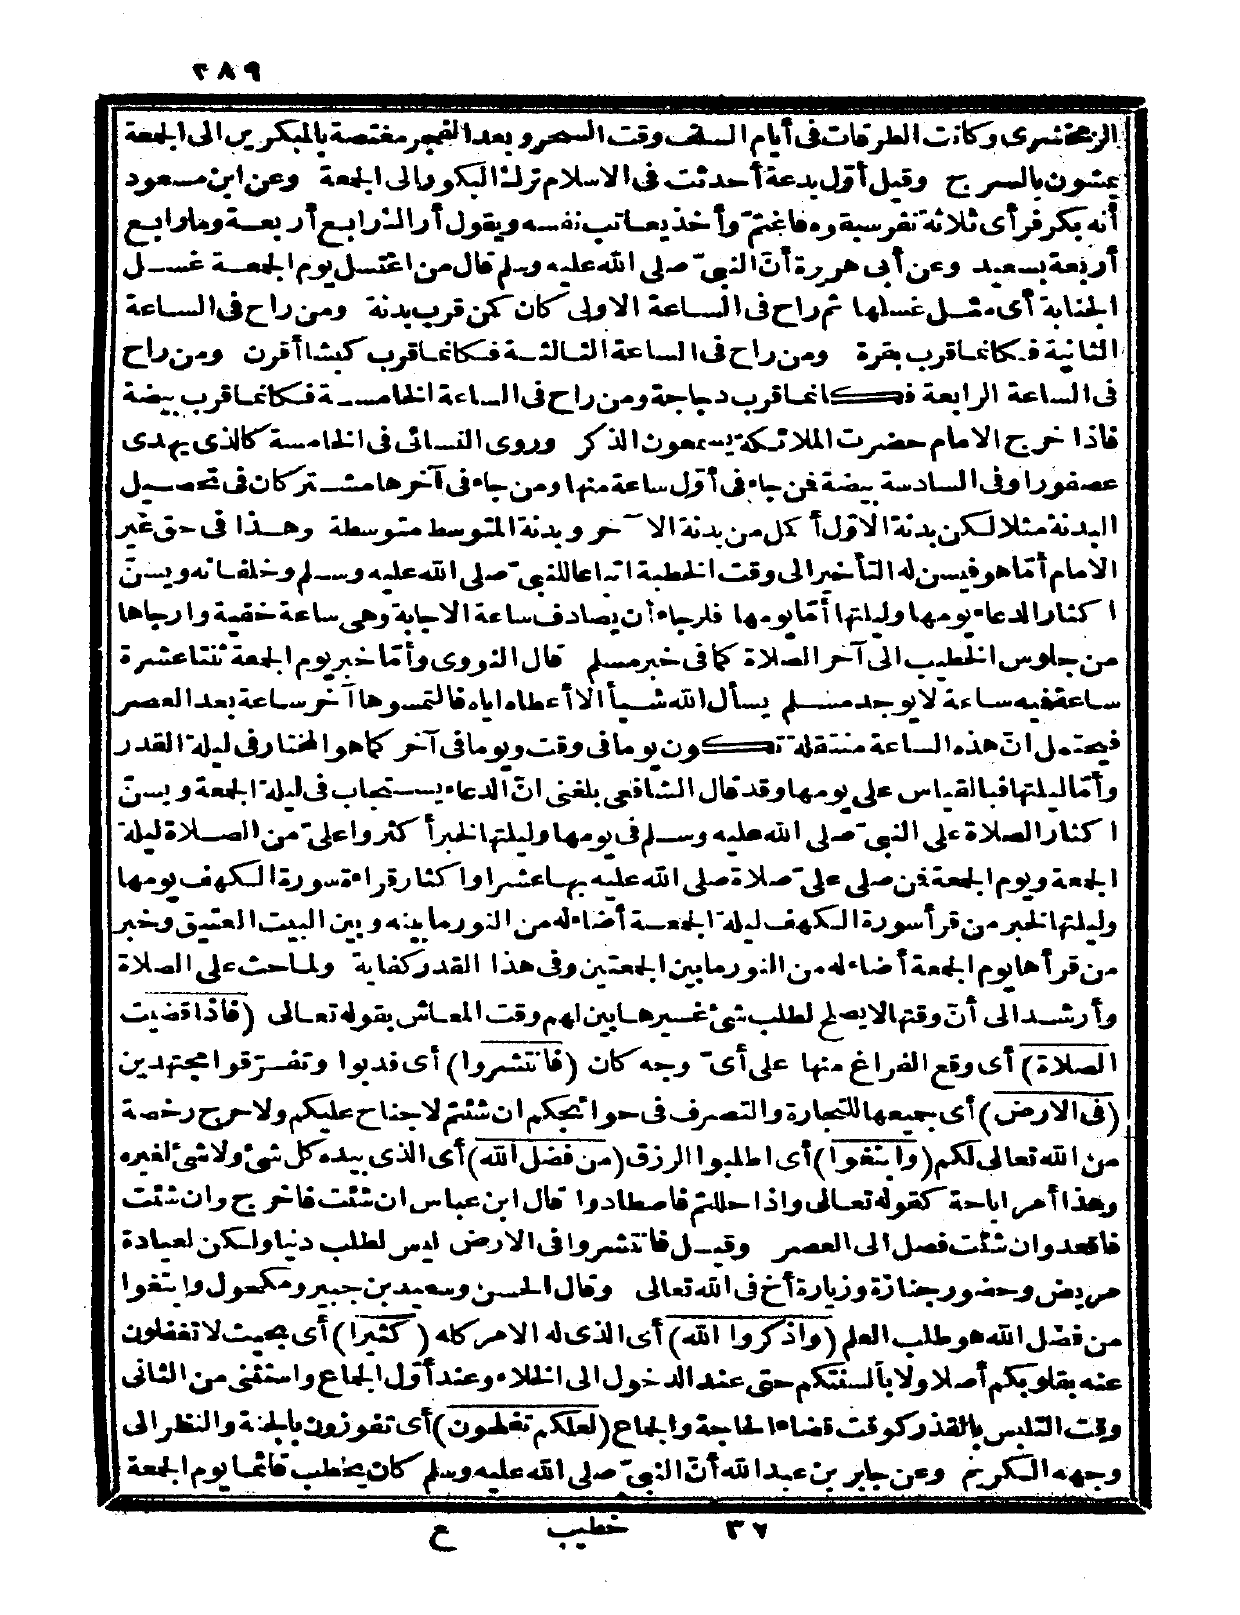 ٢٨٩
الزمخشرى وكانت الطرقات فى أيام السلف وقت السحر وبعد الفجر مغتصة بالمبكرين الى الجمعة
يمشون بالسرج وقيل أوّل بدعة أحدثت فى الاسلام ترك البكور الى الجمعة وعن ابن مسعود
أنه بكر فرأى ثلاثة نفر سبقوه فاغتمّ وأخذ يعاتب نفسه ويقول أراك رابع أربعة وما رابع
أربعة بسعيد وعن أبى هريرة أنّ النبىّ صلى الله عليه وسلم قال من اغتسل يوم الجمعة غسل
الجنابة أى مثل غسلها ثم راح فى الساعة الاولى كان كمن قرب بدنة ومن راح فى الساعة
الثانية فكانما قرب بقرة ومن راح فى الساعة الثالثة فكانما قرب كبشا أقرن ومن راح
فى الساعة الرابعة فكانما قرب دجاجة ومن راح فى الساعة الخامسة فكانما قرب بيضة
فاذا خرج الامام حضرت الملائكة يسمعون الذكر وروى النسائى فى الخامسة كالذى يهدى
عصفورا وفى السادسة بيضة فمن جاء فى أوّل ساعة منها ومن جاء فى آخرها مشتركان فى تحصيل
البدنة مثلا لكن بدنة الاوّل أكمل من بدنة الآخر وبدنة المتوسط متوسطة وهذا فى حق غير
الامام أمّا هو فيسن له التأخير الى وقت الخطبة اتباعا للنبىّ صلى الله عليه وسلم وخلفائه ويسنّ
اكثار الدعاء يومها وليلتها أمّا يومها فلرجاء أن يصادف ساعة الاجابة وهى ساعة خفية وارجاها
من جلوس الخطيب الى آخر الصلاة كما فى خبر مسلم قال النووى وأمّا خبر يوم الجمعة ثنتا عشرة
ساعة فيه ساعة لا يوجد مسلم يسأل الله شيأ الا أعطاه اياه فالتمسوها آخر ساعة بعد العصر
فيحتمل انّ هذه الساعة منتقلة تكون يوما فى وقت ويوما فى آخر كما هو المختار فى ليلة القدر
وأمّا ليلتها فبالقياس على يومها وقد قال الشافعى بلغنى انّ الدعاء يستجاب فى ليلة الجمعة ويسنّ
اكثار الصلاة على النبىّ صلى الله عليه وسلم فى يومها وليلتها لخبر أكثروا علىّ من الصلاة ليلة
الجمعة ويوم الجمعة فمن صلى علىّ صلاة صلى الله عليه بها عشرا واكثار قراءة سورة الكهف يومها
وليلتها لخبر من قرأ سورة الكهف ليلة الجمعة أضاء له من النور ما بينه وبين البيت العتيق وخبر
من قرأها يوم الجمعة أضاء له من النور ما بين الجمعتين وفى هذا القدر كفاية ولما حث على الصلاة
وأرشد الى أنّ وقتها لا يصلح لطلب شئ غيرها بين لهم وقت المعاش بقوله تعالى (فاذا قضيت
الصلاة) أى وقع الفراغ منها على أىّ وجه كان (فانتشروا) أى فدبوا وتفرّقوا مجتهدين
(فى الارض) أى جميعها للتجارة والتصرف فى حوائجكم ان شئتم لا جناح عليكم ولا حرج رخصة
من الله تعالى لكم (وابتغوا) أى اطلبوا الرزق (من فضل الله) أى الذى بيده كل شئ ولا شئ لغيره
وهذا أمر اباحة كقوله تعالى واذا حللتم فاصطادوا قال ابن عباس ان شئت فاخرج وان شئت
فاقعد وان شئت فصل الى العصر وقيل فانتشروا فى الارض ليس لطلب دنيا ولكن لعيادة
مريض وحضور جنازة وزيارة أخ فى الله تعالى وقال الحسن وسعيد بن جبير ومكحول وابتغوا
من فضل الله هو طلب العلم (واذكروا الله) أى الذى له الامر كله (كثيرا) أى بحيث لا تغفلون
عنه بقلوبكم أصلا ولا بألسنتكم حتى عند الدخول الى الخلاء وعند أوّل الجماع واستثنى من الثانى
وقت التلبس بالقذر كوقت قضاء الحاجة والجماع (لعلكم تفلحون) أى تفوزون بالجنة والنظر الى
وجهه الكريم وعن جابر بن عبد الله أنّ النبىّ صلى الله عليه وسلم كان يخطب قائما يوم الجمعة
٣٧ خطيب ع